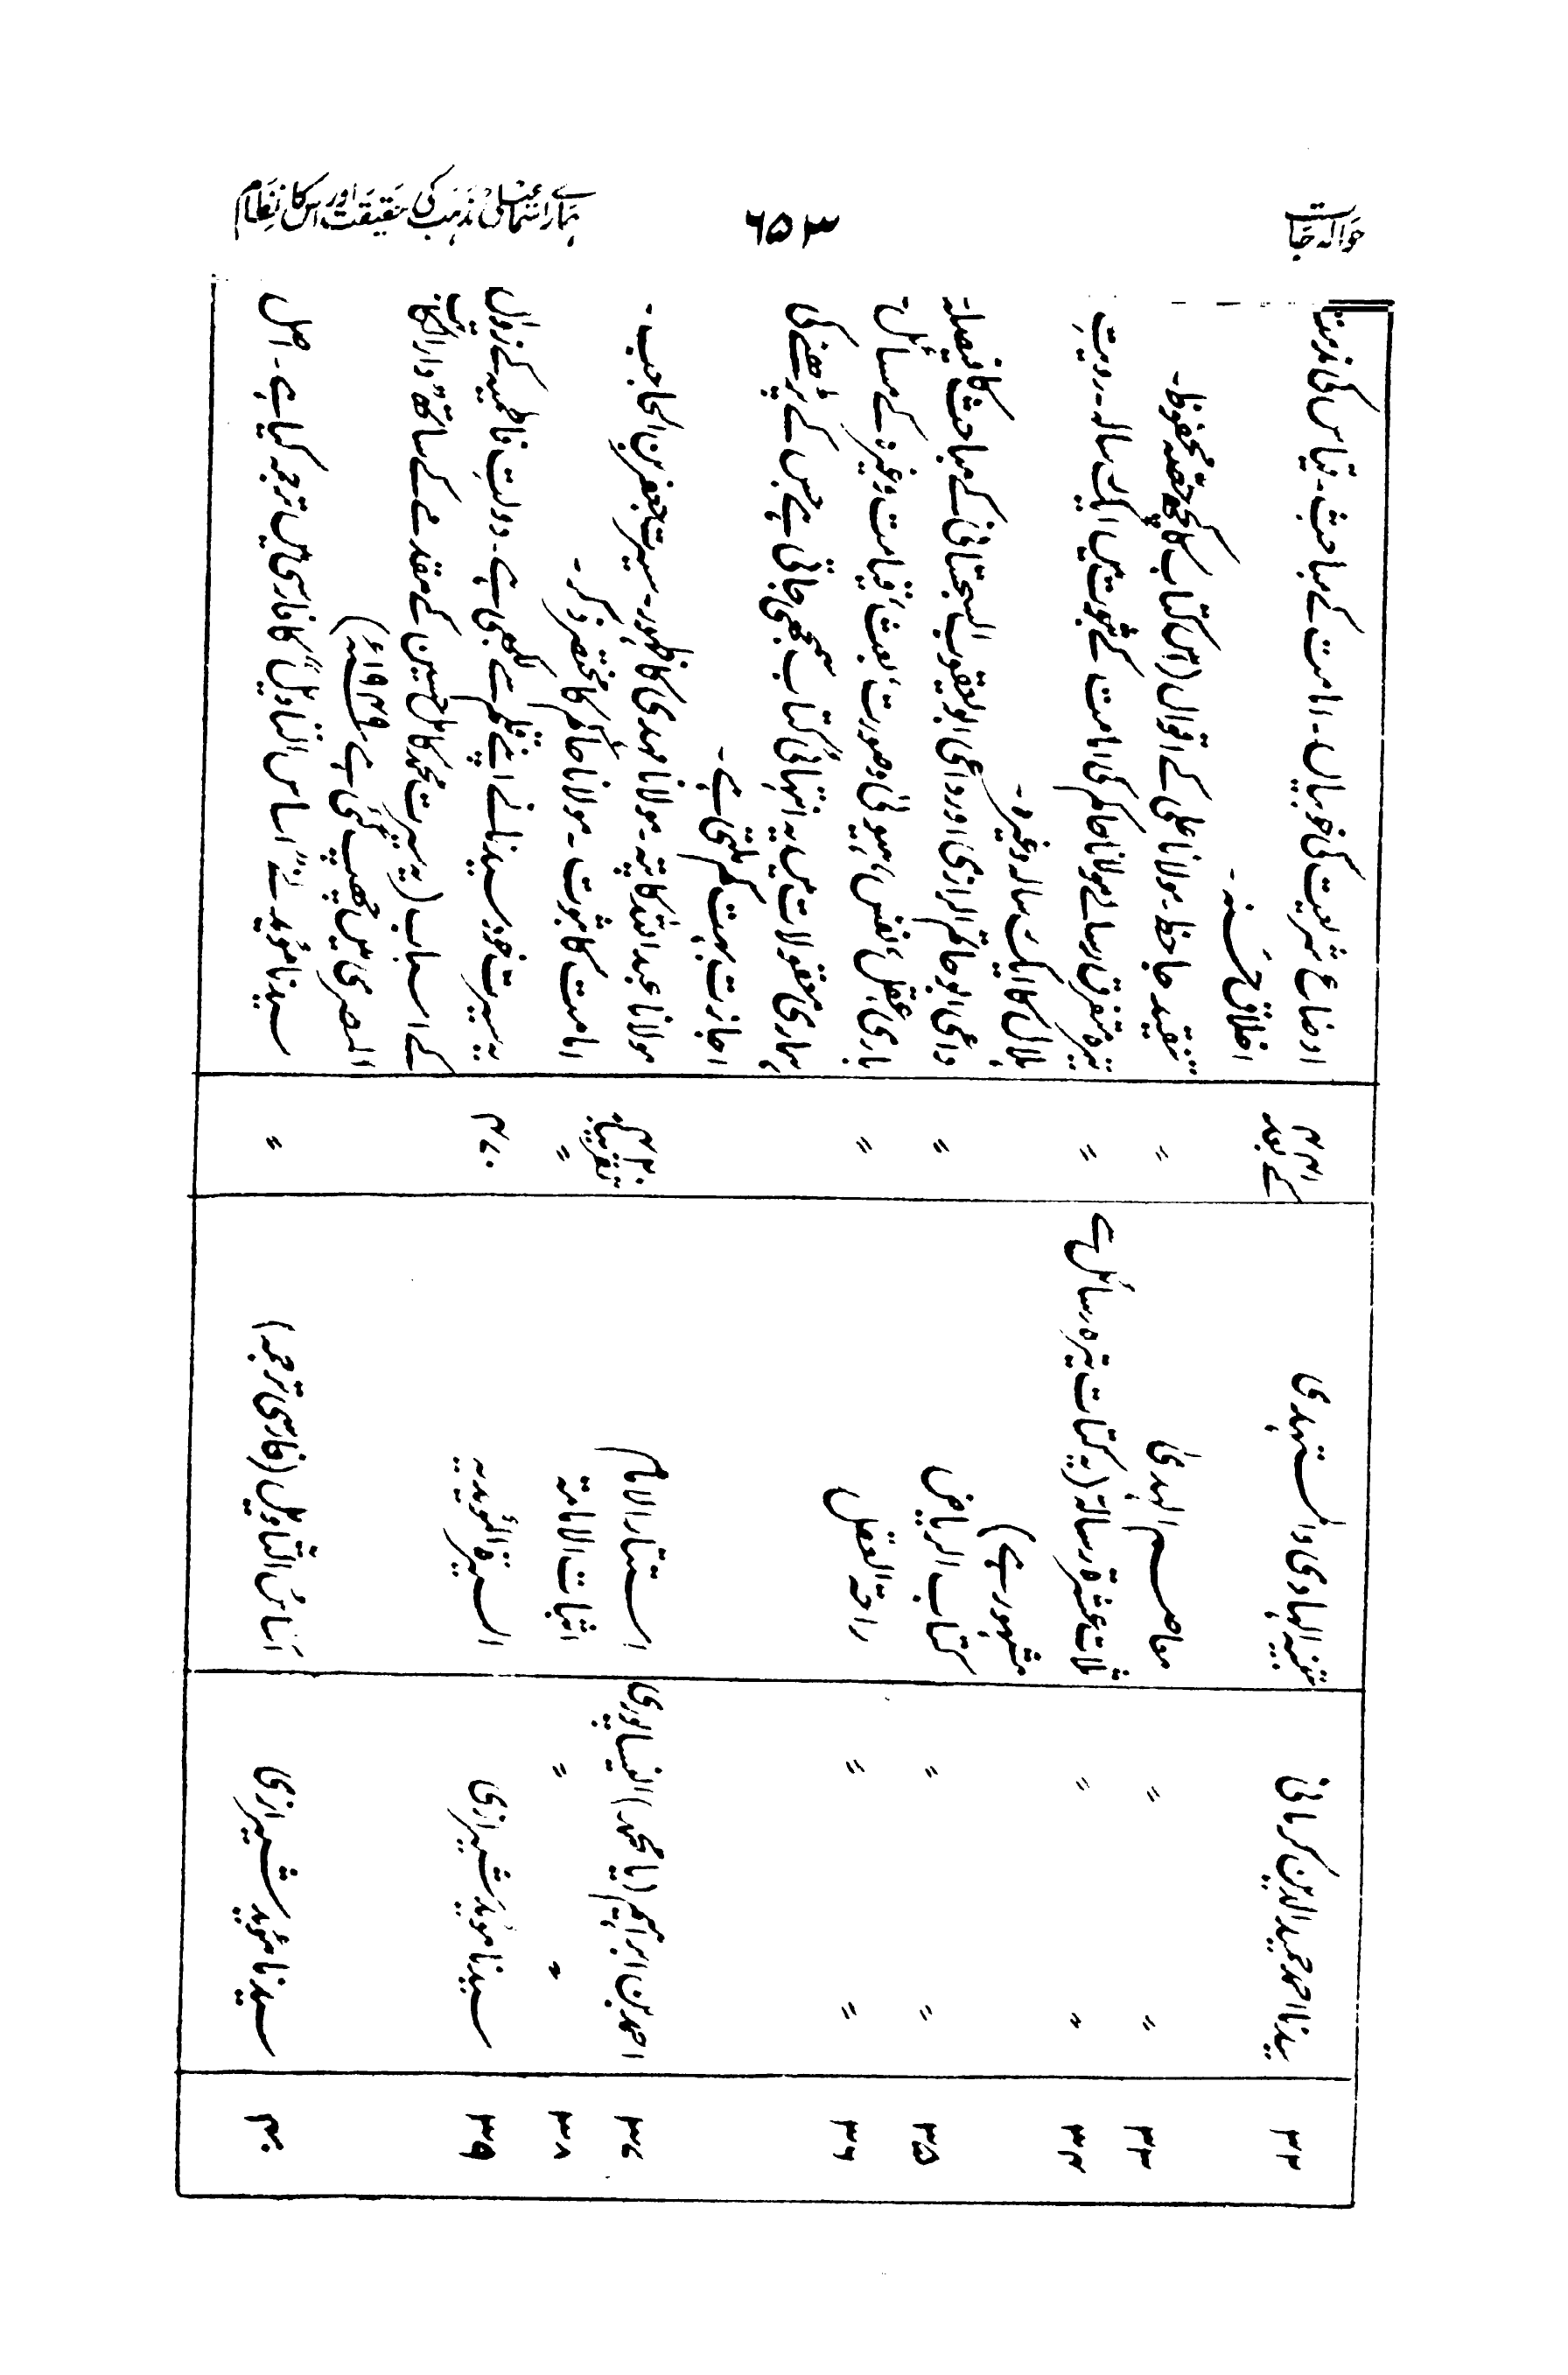 حوالہ جات
۶۵۳
ہمارے اسماعیلی مذہب کی حقیقت اور اس کا نظام
۳۲ سیدنا احمد حمید الدین کرمانی تنبیہ الہادی والمستہدی ۴۱۱ کے بعد اوضاع شریعت کی خوبیاں۔ امامت کے مباحث۔ قیاس کی مذمت
اخلاق حسنہ۔
۳۳ " " معاصم الہدیٰ " تنقید جاحظ۔ مولانا علی کے اقوال (اس کتاب کا کچھ حصّہ محفوظ۔
۳۴ " " ثلاث عشرۃ رسالۃ (یہ کتاب تیرہ رسائل سے " تیرہ متفرق رسالے مولانا حاکم کی امامت کے ثبوت میں ایک رسالہ۔ رویتِ
مشہور ہے) ہلال کا ایک رسالہ وغیرہ۔
۳۵ " " کتاب الریاض " داعی ابو حاتم الرازی اور داعی ابو یعقوب السجستانی کے مباحث کا فیصلہ۔
۳۶ " " راحۃ العقل " باری، عقل، نفس، ہیولیٰ و صورت، بعث، قیامت وغیرہ کے مسائل۔
ہماری معقولات میں یہ انتہائی کتاب سمجھی جاتی ہے جس کے پڑھنے کی
اجازت بہت کم ملتی ہے۔
۳۷ احمد بن ابراہیم (یا محمد) النیساپوری استتار الامام تقریباً مولانا عبد اللہ کا پتہ۔ مولانا مہدی کا ظہور۔ سیرت جعفر بن الحاجب۔
۳۸ " " اثبات الامامۃ " امامت کا ثبوت۔ مولانا حاکم کا مختصر ذکر۔
۳۹ سیدنا موید شیرازی السیرۃ المؤیدیہ ۴۷۰ یہ سیرت خود سیدنا نے اپنے قلم سے لکھی ہے۔ دولتِ فاطمیہ کے زوال
کے اسباب (یہ سیرت محمد کامل حسین کے مقدمے کے ساتھ دار الکاتب
المصری میں چھپ گئی ہے ۱۹۴۹ء)
۴۰ سیدنا مؤید شیرازی اساس التاویل (فارسی ترجمہ) " سیدنا مؤید نے "اساس التاویل" کا فارسی میں ترجمہ کیا ہے۔ اصل